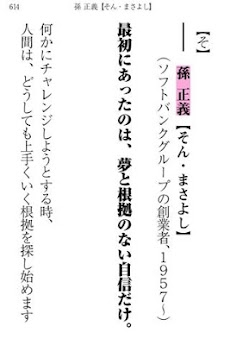 614
孫 正義【そん・まさよし】
【そ】
孫 正義【そん・まさよし】
(ソフトバンクグループの創業者、1957〜)
最初にあったのは、夢と根拠のない自信だけ。
何かにチャレンジしようとする時、
人間は、どうしても上手くいく根拠を探し始めます